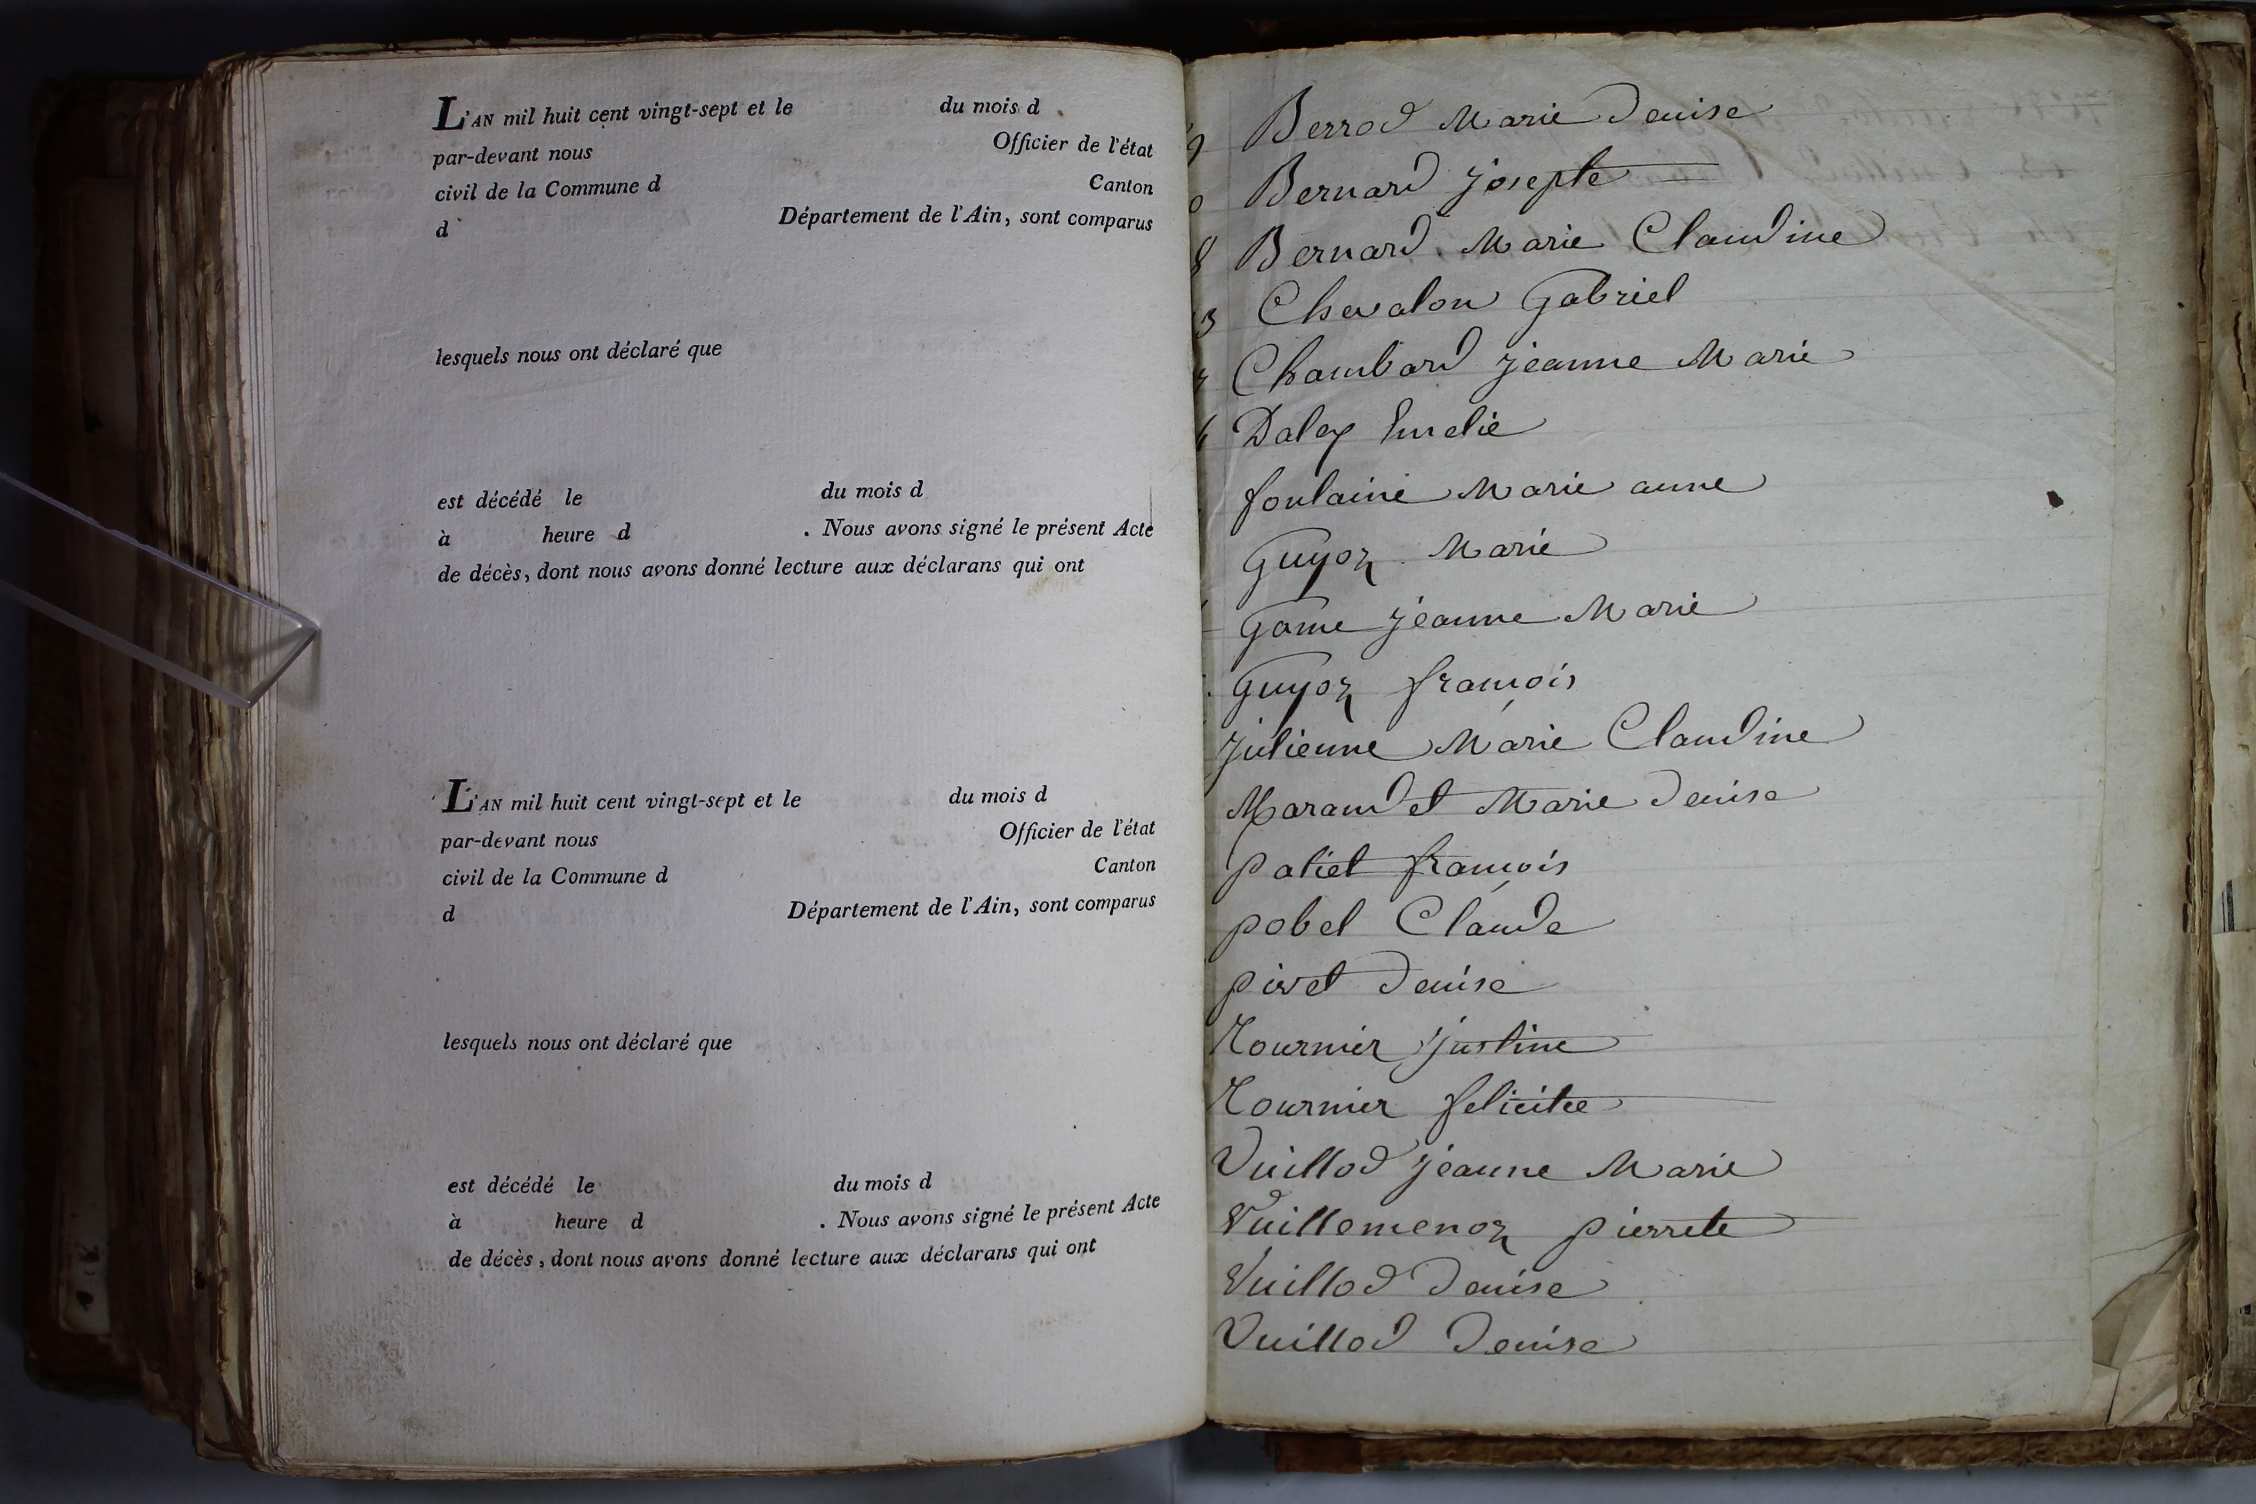 L'AN mil huit cent vingt-sept et le du mois d
par-devant nous Officier de l'état
civil de la Commune d Canton
d Département de l'Ain, sont comparus
lesquels nous ont déclaré que
est décédé le du mois d
à heure d . Nous avons signé le présent Acte
de décès, dont nous avons donné lecture aux déclarans qui ont
L'AN mil huit cent vingt-sept et le du mois d
par-devant nous Officier de l'état
civil de la Commune d Canton
d Département de l'Ain, sont comparus
lesquels nous ont déclaré que
est décédé le du mois d
à heure d . Nous avons signé le présent Acte
de décès, dont nous avons donné lecture aux déclarans qui ont
9 Berrod Marie Denise
0 Bernard Josepte
8 Bernard Marie Claudine
3 Chevalon Gabriel
Chambard Jeanne Marie
6 Daloz Emelie
fontaine Marie anne
Guyoz Marie
Game Jeanne Marie
Guyoz françois
Julienne Marie Claudine
Marandet Marie Denise
patiet françois
pobel Claude
pivet Denise
Tournier Justine
Tournier felicitee
Vuillod Jeanne Marie
Vuillemenoz pierrete
Vuillod Denise
Vuillod Denise